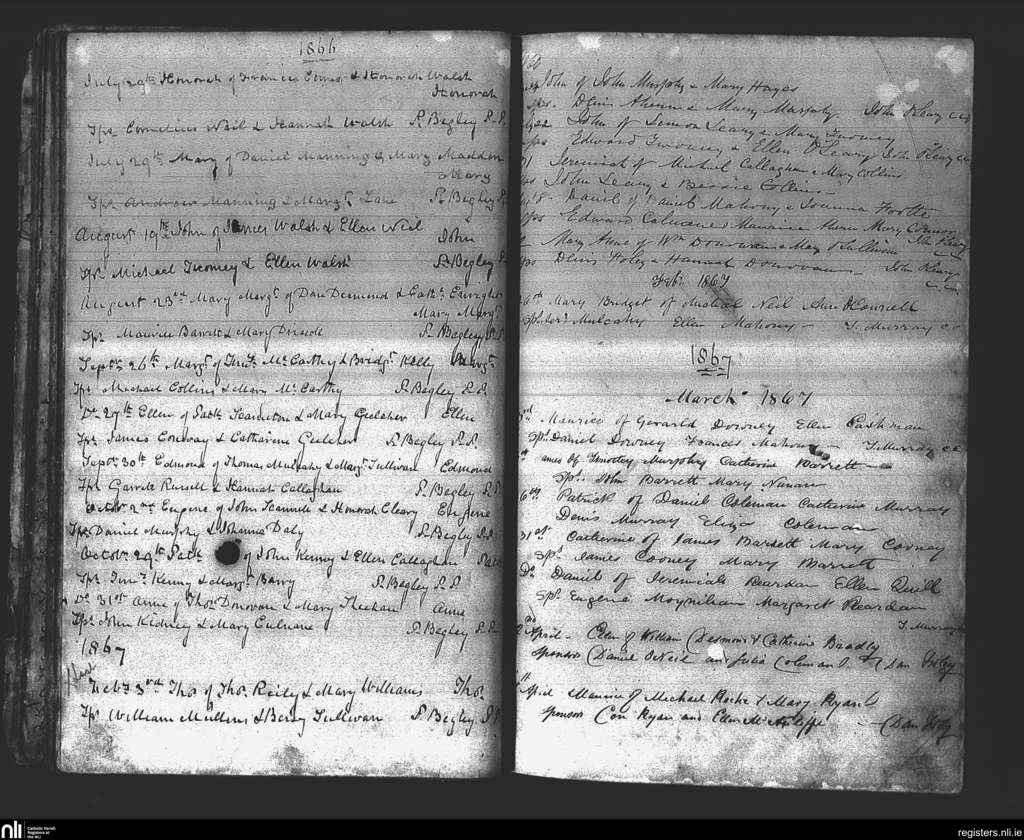 1866
July 29th Honorah of Francis Connor & Honorah Walsh
Honorah
Sprs Cornelius Neil & Hannah Walsh P. Begley P.P.
July 29th Mary of Daniel Manning & Mary Madden
Mary
Sprs Andrew Manning & Margt Lane P. Begley P.P.
August 19th John of James Walsh & Ellen Neil
John
Sprs Michael Twomey & Ellen Walsh P. Begley P.
August 23rd Mary Margt of Dan Desmond & Cath Enright
Mary Margt
Sprs Maurice Barrett & Mary Driscole P. Begley P.P.
Septr 26th Margt of Timy McCarthy & Bridgt Kelly Margt
Sprs Michael Collins & Mary McCarthy P. Begley P.P.
Do 27th Ellen of Patk & Mary Gulcher Ellen
Sprs James Conway & Catharine Gulcher P. Begley P.P.
Septr 30th Edmond of Thomas Mulcahy & Margt Sullivan Edmond
Sprs Garrett Russell & Hannah Callaghan P. Begley P.P.
Octobr 2nd Eugene of John Scannell & Honorah Cleary Eugene
Sprs Daniel Murphy & Johanna Daly P. Begley P.P.
Octobr 29th Patk of John Kenny & Ellen Callaghan Patk
Sprs Timy Kenny & Margt Barry P. Begley P.P.
Do 31st Anne of Thos Donovan & Mary Sheehan Anne
Sprs John Kidney & Mary Culnane P. Begley P.P.
1867
Feby 3rd Thos of Thos Reily & Mary Williams Thos
Sprs William Mullins & Bessy Sullivan P. Begley P.P.
John of John Murphy & Mary Hayes
Denis Ahern & Mary Murphy John O'Leary CC
John of Simon Leary & Mary Twomey
Edward Twomey & Ellen O'Leary John O'Leary CC
Jeremiah of Michael Callaghan & Mary Collins
John Leary & Bessie Collins
18 Daniel of Daniel Mahony & Joanna
Edward Culnane Mary Connor John O'Leary
Mary Anne of Wm Donovan & Mary O'Sullivan
Denis Foley & Hannah Donovan John O'Leary
C.C.
Feb. 1867
6th Mary Bridget of Michael Neil Ann O'Connell
Mulcahy Ellen Mahony T. Murray CC
1867
March 1867
3rd Maurice of Gerarld Downey Ellen Eashman
Sps Daniel Downey Frances Mahony T. Murray CC
James of Timothy Murphy Catherine Barrett
Sps. John Barrett Mary Nunan
6th Patrick of Daniel Coleman Catherine Murray
Denis Murray Eliza Coleman
31st Catherine of James Barrett Mary Cooney
Sps James Cooney Mary Barrett
Do Daniel of Jeremiah Reardan Ellen Quill
Sps Eugene Moynihan Margaret Reardan
T. Murray
April - Ellen of William Desmond & Catherine
Sponsors Daniel O'Neil and Julia Coleman Dan Foley
April Maurice of Michael Roche & Mary Ryan
Sponsors Con Ryan and Ellen McAuliffe - Dan Foley
nli
Catholic Parish
Registers at
the NLI
registers.nli.ie